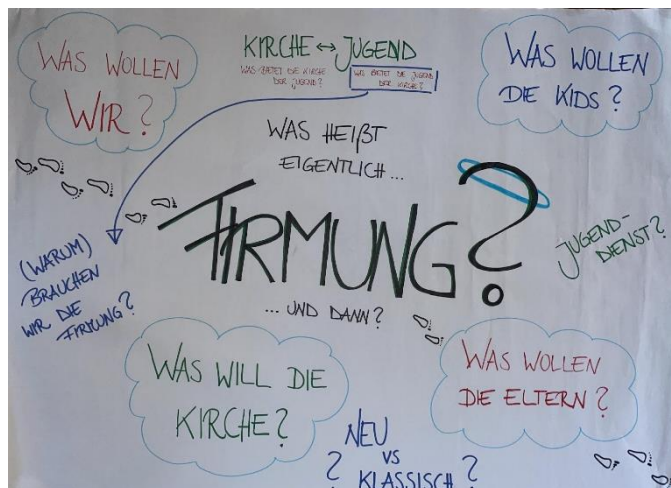 WAS WOLLEN
WIR?
KIRCHE ↔ JUGEND
WAS BIETET DIE KIRCHE
DER JUGEND?
WAS BIETET DIE JUGEND
DER KIRCHE?
WAS WOLLEN
DIE KIDS?
WAS HEIßT
EIGENTLICH...
FIRMUNG?
... UND DANN?
JUGEND-
DIENST?
(WARUM)
BRAUCHEN
WIR DIE
FIRMUNG?
WAS WILL DIE
KIRCHE?
WAS WOLLEN
DIE ELTERN?
NEU
? VS
KLASSISCH?